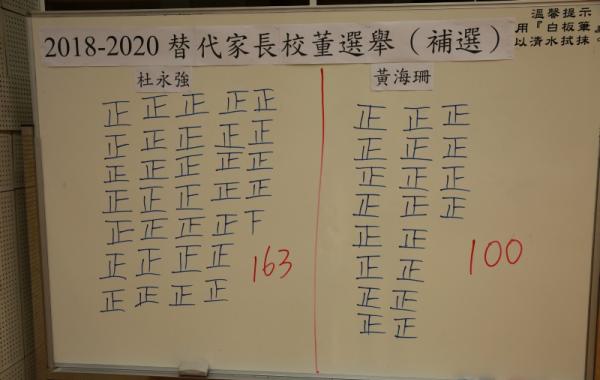 溫馨提示
用『白板筆』
以清水拭抹。
2018-2020 替代家長校董選舉（補選）
杜永強
正 正 正 正 正
正 正 正 正 正
正 正 正 正 正
正 正 正 正 正
正 正 正 正 下
正 正 正 正
正 正 正 正
163
黃海珊
正 正 正
正 正 正
正 正 正
正 正 正
正 正
正 正
正 正
正 正
100